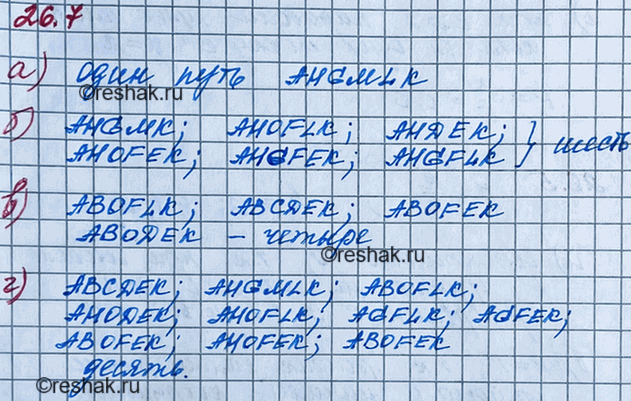 26.7
а) один путь AHGMLK
©reshak.ru
б) AHGMK; AHOFLK; AHДEK; } шесть
AHOFEK; AHGFEK; AHGFLK
в) ABOFLK; ABCДEK; ABOFEK
ABOДEK – четыре
©reshak.ru
г) ABCДEK; AHGMLK; ABOFLK;
AHOДEK; AHOFLK; AGFLK; AGFEK;
ABOFEK; AHOFEK; ABOFEK
©reshak.ru
десять.